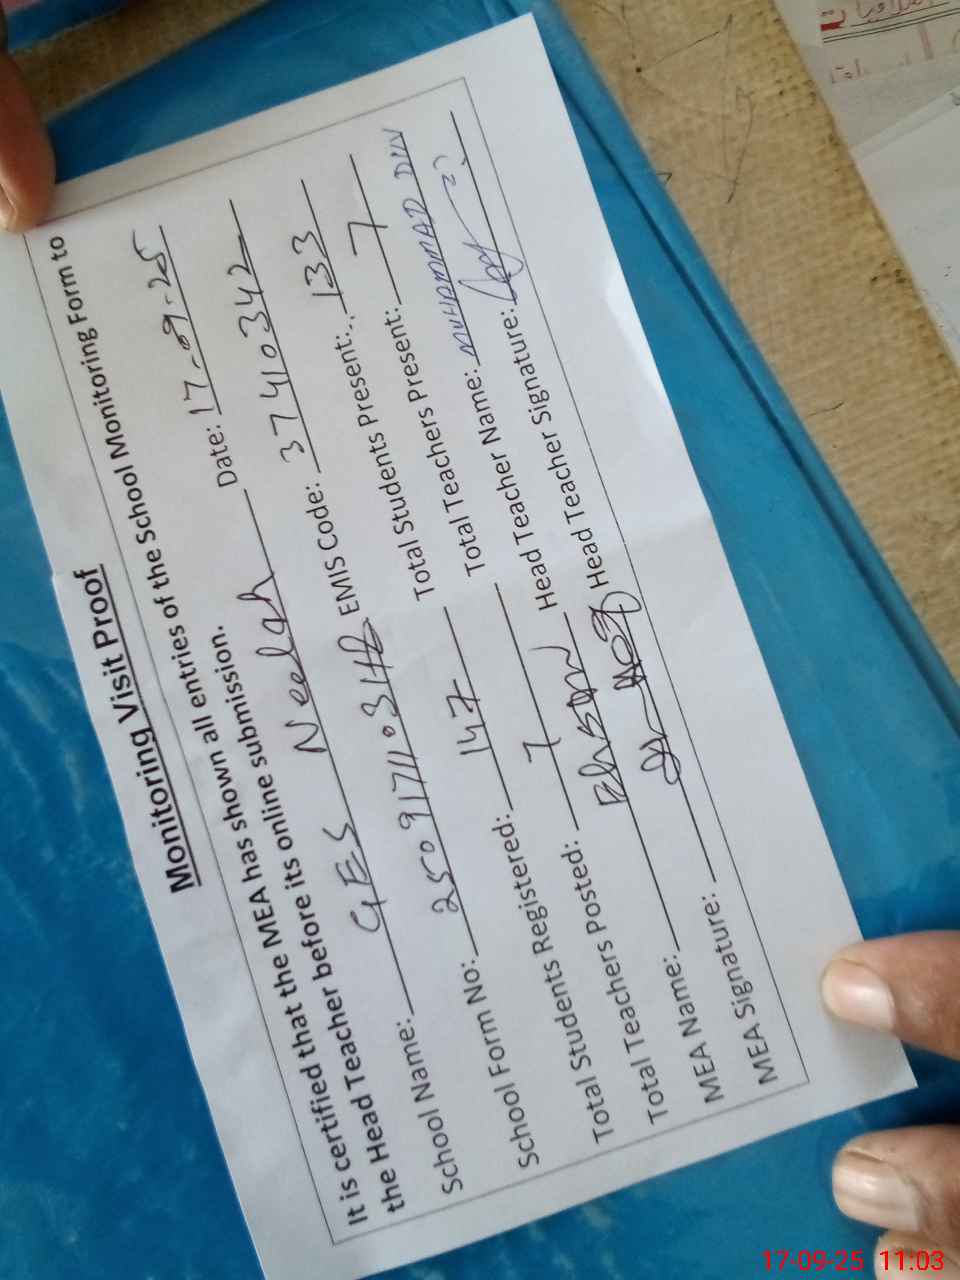 Monitoring Visit Proof
It is certified that the MEA has shown all entries of the School Monitoring Form to
the Head Teacher before its online submission.
School Name: GES Needah Date: 17-09-25
School Form No: EMIS Code: 37410342
Total Students Registered: 147 Total Students Present: 133
Total Teachers Posted: 7 Total Teachers Present: 7
MEA Name: Head Teacher Name: MUHAMMAD DIN
MEA Signature: Head Teacher Signature:
17-09-25 11:03